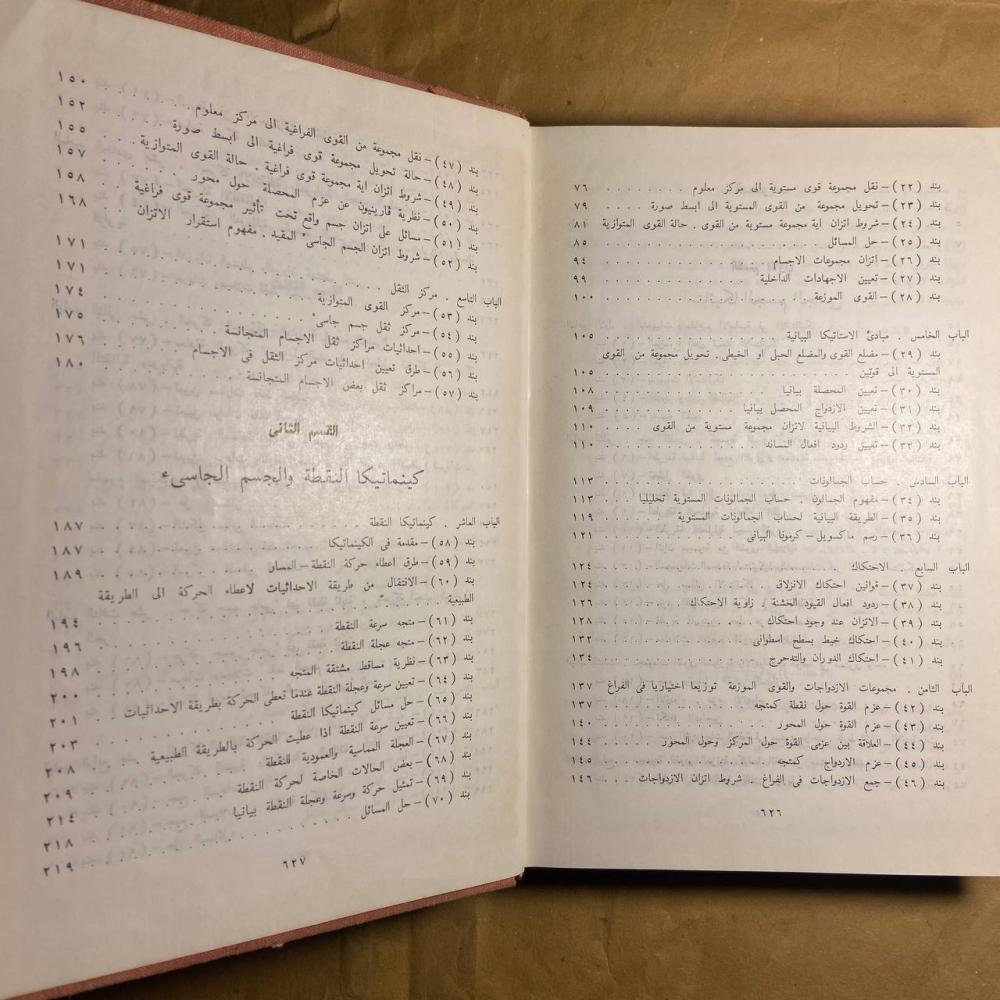 بند (٢٢) – نقل مجموعة قوى مستوية الى مركز معلوم . . . . . . . . ٧٦
بند (٢٣) – تحويل مجموعة من القوى المستوية الى ابسط صورة . . . . ٧٩
بند (٢٤) – شروط اتزان اية مجموعة مستوية من القوى . حالة القوى المتوازية ٨١
بند (٢٥) – حل المسائل . . . . . . . . ٨٥
بند (٢٦) – اتزان مجموعات الاجسام . . . . . . . . ٩٤
بند (٢٧) – تعيين الاجهادات الداخلية . . . . . . . . ٩٩
بند (٢٨) – القوى الموزعة . . . . . . . . ١٠٠
الباب الخامس . مبادئ الاستاتيكا البيانية . . . . . . . . ١٠٥
بند (٢٩) – مضلع القوى والمضلع الحبلى او الخيطى . تحويل مجموعة من القوى
المستوية الى قوتين . . . . . . . . ١٠٥
بند (٣٠) – تعيين المحصلة بيانيا . . . . . . . . ١٠٨
بند (٣١) – تعيين الازدواج المحصل بيانيا . . . . . . . . ١٠٩
بند (٣٢) – الشروط البيانية لاتزان مجموعة مستوية من القوى . . . . ١١٠
بند (٣٣) – تعيين ردود افعال التساند . . . . . . . . ١١٠
الباب السادس . حساب الجمالونات . . . . . . . . ١١٣
بند (٣٤) – مفهوم الجمالون . حساب الجمالونات المستوية تحليليا . . . ١١٣
بند (٣٥) – الطريقة البيانية لحساب الجمالونات المستوية . . . . . . ١١٩
بند (٣٦) – رسم ماكسويل – كرمونا البيانى . . . . . . . . ١٢١
الباب السابع . الاحتكاك . . . . . . . . ١٢٤
بند (٣٧) – قوانين احتكاك الانزلاق . . . . . . . . ١٢٤
بند (٣٨) – ردود افعال القيود الخشنة . زاوية الاحتكاك . . . . . . ١٢٦
بند (٣٩) – الاتزان عند وجود احتكاك . . . . . . . . ١٢٨
بند (٤٠) – احتكاك خيط بسطح اسطوانى . . . . . . . . ١٣٢
بند (٤١) – احتكاك الدوران والتدحرج . . . . . . . . ١٣٤
الباب الثامن . مجموعات الازدواجات والقوى الموزعة توزيعا اختياريا فى الفراغ ١٣٧
بند (٤٢) – عزم القوة حول نقطة كمتجه . . . . . . . . ١٣٧
بند (٤٣) – عزم القوة حول المحور . . . . . . . . ١٤٠
بند (٤٤) – العلاقة بين عزمى القوة حول المركز وحول المحور . . . . . . ١٤٤
بند (٤٥) – عزم الازدواج كمتجه . . . . . . . . ١٤٥
بند (٤٦) – جمع الازدواجات فى الفراغ . شروط اتزان الازدواجات . . . ١٤٦
٦٢٦
بند (٤٧) – نقل مجموعة من القوى الفراغية الى مركز معلوم . . . . . . ١٥٠
بند (٤٨) – حالة تحويل مجموعة قوى فراغية الى ابسط صورة . . . . ١٥٢
بند (٤٩) – شروط اتزان اية مجموعة قوى فراغية . حالة القوى المتوازية . ١٥٥
بند (٥٠) – نظرية ڤارينيون عن عزم المحصلة حول محور . . . . . . ١٥٧
بند (٥١) – مسائل على اتزان جسم واقع تحت تأثير مجموعة قوى فراغية . . ١٥٨
بند (٥٢) – شروط اتزان الجسم الجاسىء المقيد . مفهوم استقرار الاتزان . . . ١٦٨
الباب التاسع . مركز الثقل . . . . . . . . ١٧١
بند (٥٣) – مركز القوى المتوازية . . . . . . . . ١٧١
بند (٥٤) – مركز ثقل جسم جاسىء . . . . . . . . ١٧٤
بند (٥٥) – احداثيات مراكز ثقل الاجسام المتجانسة . . . . . . ١٧٥
بند (٥٦) – طرق تعيين احداثيات مركز الثقل فى الاجسام . . . . . . ١٧٦
بند (٥٧) – مراكز ثقل بعض الاجسام المتجانسة . . . . . . . . ١٨٠
القسم الثانى
كينماتيكا النقطة والجسم الجاسىء
الباب العاشر . كينماتيكا النقطة . . . . . . . . ١٨٧
بند (٥٨) – مقدمة فى الكينماتيكا . . . . . . . . ١٨٧
بند (٥٩) – طرق اعطاء حركة النقطة – المسار . . . . . . . . ١٨٩
بند (٦٠) – الانتقال من طريقة الاحداثيات لاعطاء الحركة الى الطريقة
الطبيعية . . . . . . . . ١٩٤
بند (٦١) – متجه سرعة النقطة . . . . . . . . ١٩٦
بند (٦٢) – متجه عجلة النقطة . . . . . . . .
بند (٦٣) – نظرية مساقط مشتقة المتجه . . . . . . . . ١٩٨
بند (٦٤) – تعيين سرعة وعجلة النقطة عندما تعطى الحركة بطريقة الاحداثيات . ٢٠٠
بند (٦٥) – حل مسائل كينماتيكا النقطة . . . . . . . . ٢٠١
بند (٦٦) – تعيين سرعة النقطة اذا عطيت الحركة بالطريقة الطبيعية . . . ٢٠٣
بند (٦٧) – العجلة المماسية والعمودية للنقطة . . . . . . . . ٢٠٨
بند (٦٨) – بعض الحالات الخاصة لحركة النقطة . . . . . . . . ٢٠٩
بند (٦٩) – تمثيل حركة وسرعة وعجلة النقطة بيانيا . . . . . . ٢١٤
بند (٧٠) – حل المسائل . . . . . . . . ٢١٨
٢١٩
٦٢٧